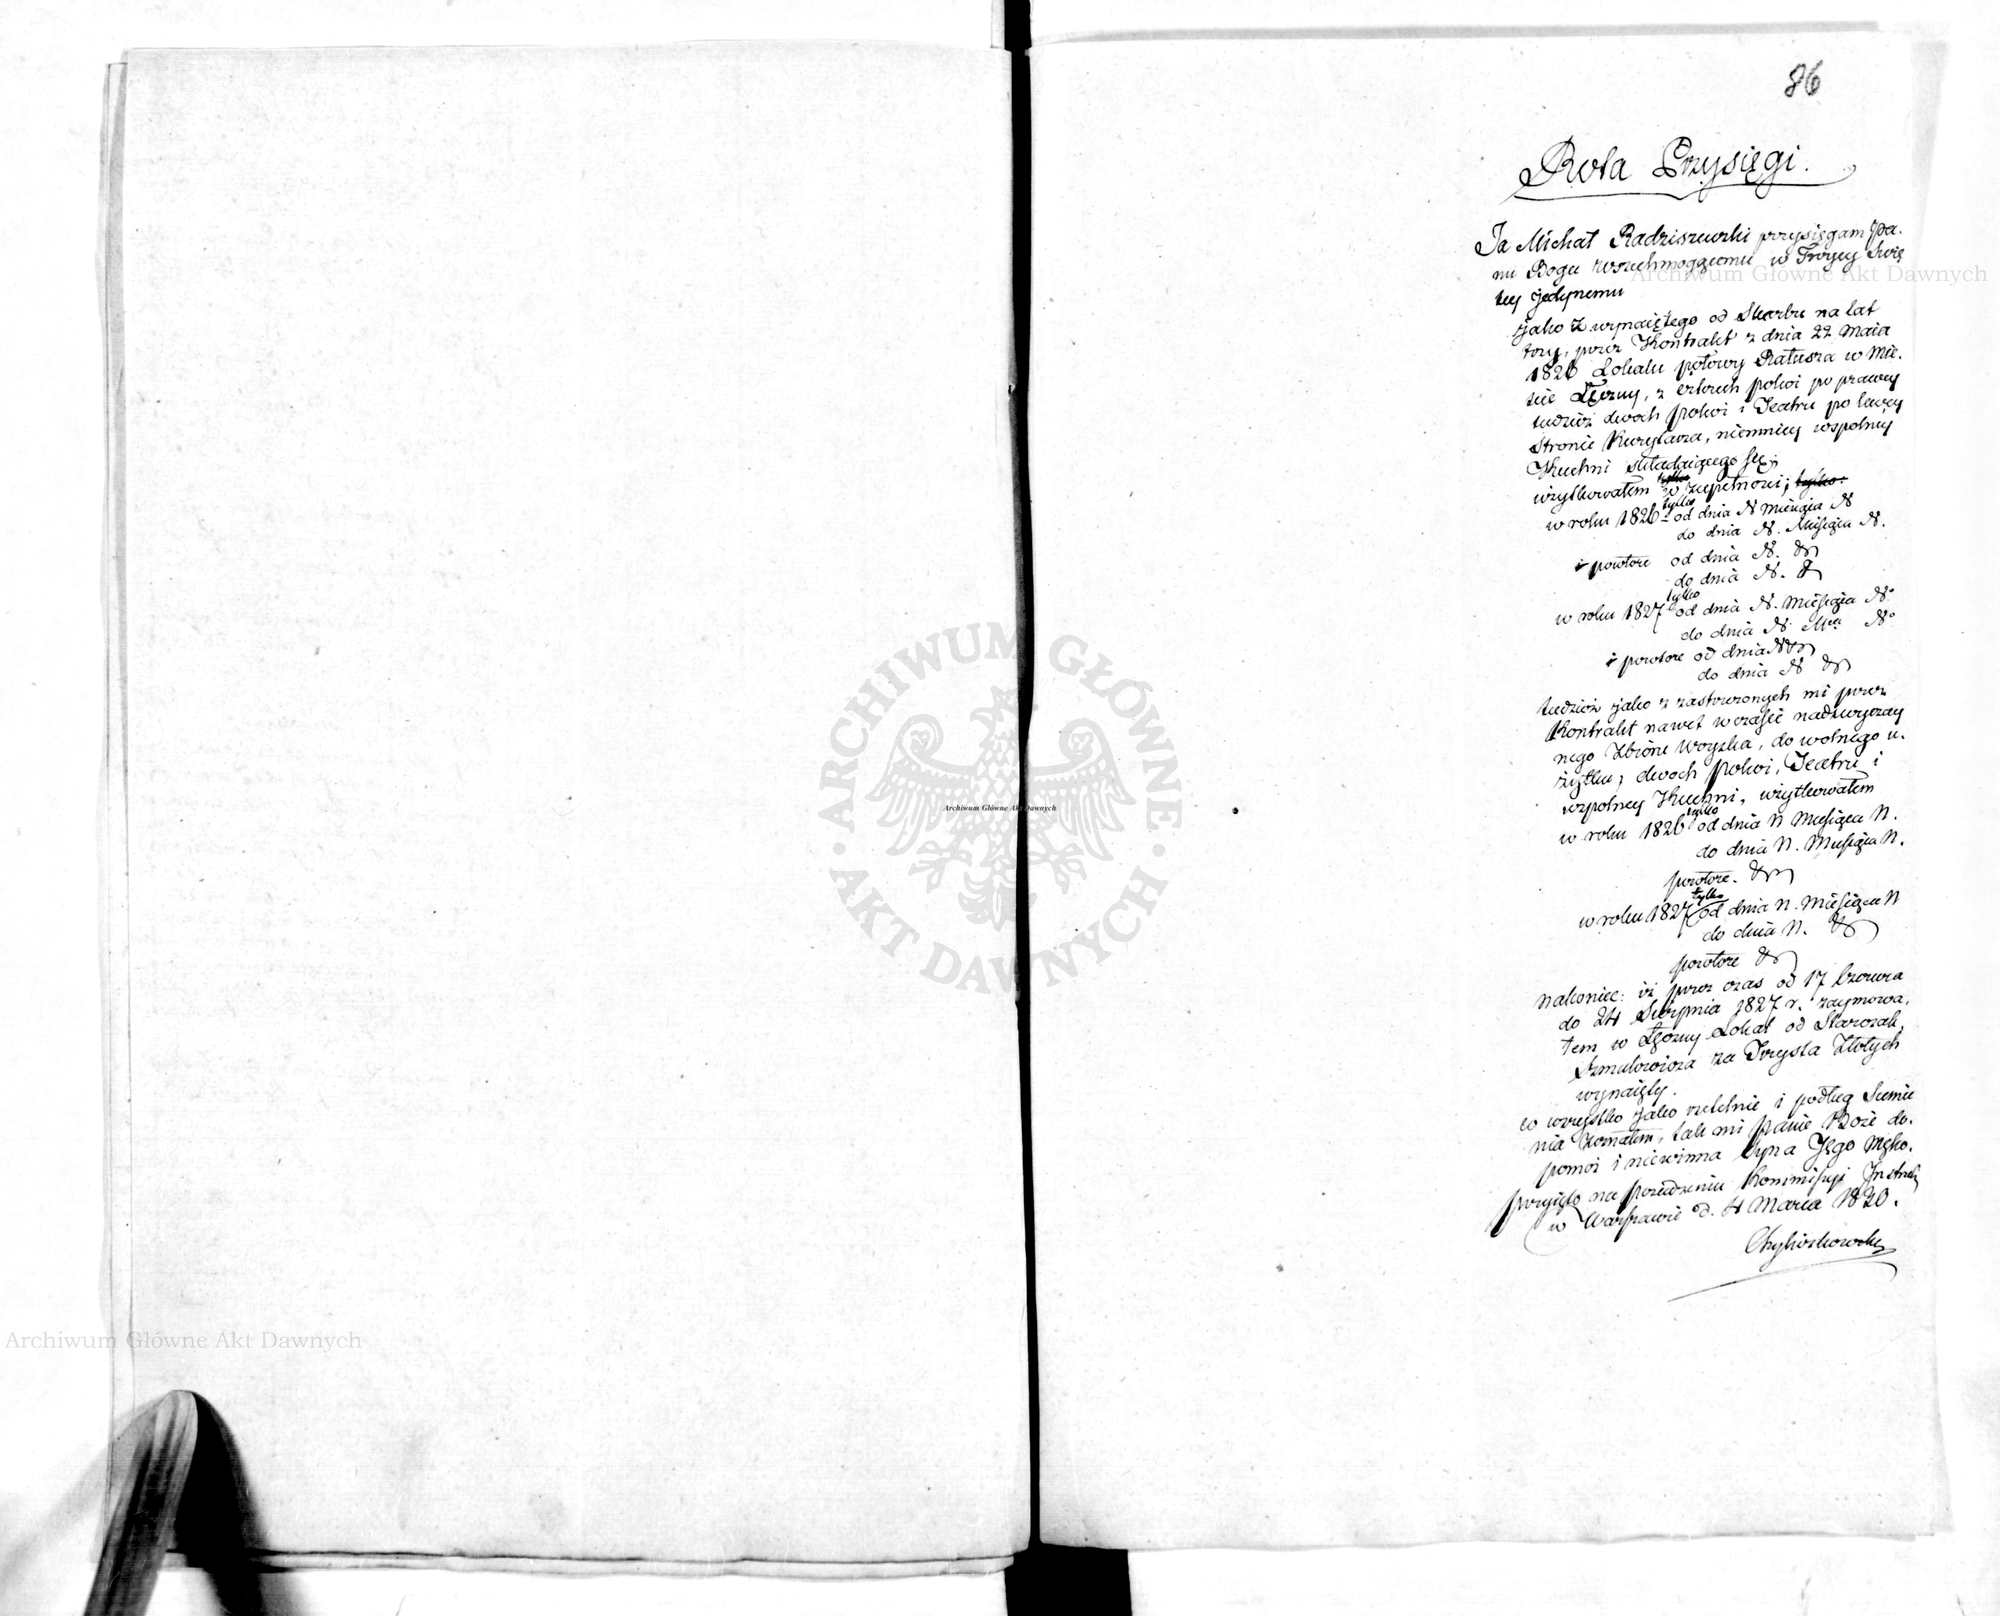 86
Rota Przysięgi.
Ja Michał Radziszewski przysięgam Pa-
nu Bogu wszechmogącemu w Trojcy Swię
tey jedynemu
jako z wynaiętego od Skarbu na lat
trzy, przez Kontrakt z dnia 22 Maia
1826 Lokalu połowy Ratusza w Mie-
scie Łęczny, z czterech pokoi po prawey
tudzież dwoch pokoi i Teatru po lewey
Stronie Kurytarza, niemniey wspolney
Kuchni składaiącego się;
użytkowałem tylko w zupełności; tylko:
w roku 1826 tylko od dnia N Miesiąca N
do dnia N. Miesiąca N.
i powtore od dnia N. &
do dnia N. &
w roku 1827 tylko od dnia N. Miesiąca N.
do dnia N. Mca N.
i powtore od dnia N &
do dnia N &
tudzież jako z zastrzeżonych mi przez
Kontrakt nawet w czasie nadzwyczay
nego Zbioru Woyska, do wolnego u-
żytku, dwoch pokoi, Teatru i
wspolney Kuchni, użytkowałem
w roku 1826 tylko od dnia N Miesiąca N.
do dnia N. Miesiąca N.
powtore. &
w roku 1827 tylko od dnia N. Miesiąca N
do dnia N. &
powtore &
nakoniec: iż przez czas od 17 Czerwca
do 24 Sierpnia 1827 r. zaymowa-
łem w Łęczny Lokal od Starozak.
Szmulowicza za Trzysta Złotych
wynaięty.
co wszystko jako rzetelnie i podług Sumie
nia zeznałem, tak mi Panie Boże do-
pomóż i niewinna Syna Jego Męko.
przyięto na posiedzeniu Kommissyi
w Warszawie d. 4 Marca 1830.
Archiwum Główne Akt Dawnych
Archiwum Główne Akt Dawnych
Archiwum Główne Akt Dawnych
ARCHIWUM GŁÓWNE
AKT DAWNYCH